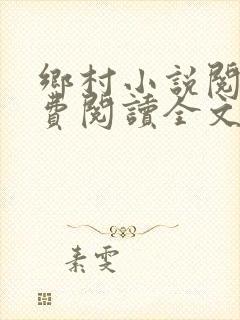 鄉村小說閱
費閱讀全文
素雯